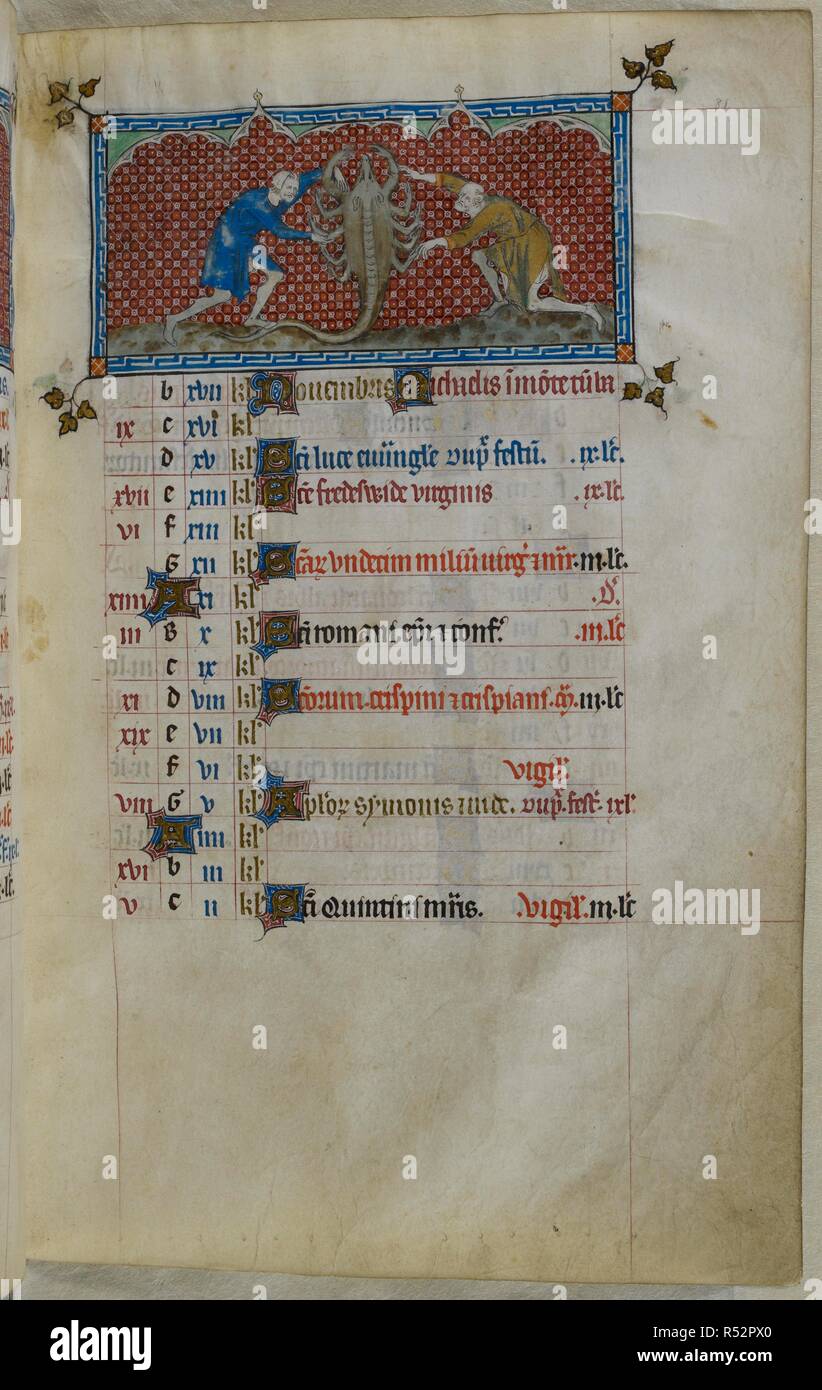 81
b xvii kl' Nouembris Michaelis ī mōte tūba
ix c xvi kl'
d xv kl' Sci luce euuͣngle dup̄ festū. .ix.lc̄.
xvii e xiiii kl' Sce fredeswide virginis .ix.lc̄.
vi f xiii kl'
G xii kl' Scāꝝ vndecim miliū uirḡ ⁊ mr̄. .m.lc̄.
xiiii A xi kl'
iii B x kl' Sci romani ep̄i ⁊ conf'. .m.lc̄
c ix kl'
xi d viii kl' Scōrum crispini ⁊ crispiani. m.lc̄
xix e vii kl'
f vi kl' vigil'
viii G v kl' Aploꝝ symonis ⁊ iude. dup̄.fest'. ix.l'.
A iiii kl'
xvi b iii kl'
v c ii kl' Sci Quintini mr̄is. .vigil'. m.lc̄
alamy
Image ID: R52PX0
www.alamy.com